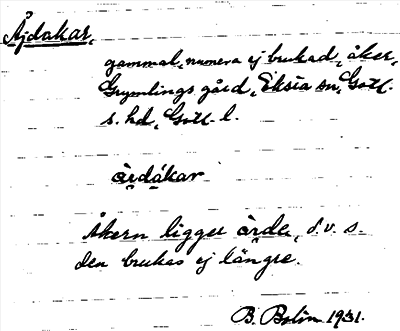 Åjdakar,
gammal, numera ej brukad, åker,
Grymlings gård, Eksta sn, Gotl.
s. hd, Gotl. l.
àrdákar
Åkern ligger àrde, d.v.s.
den brukas ej längre.
B. Bolin 1931.